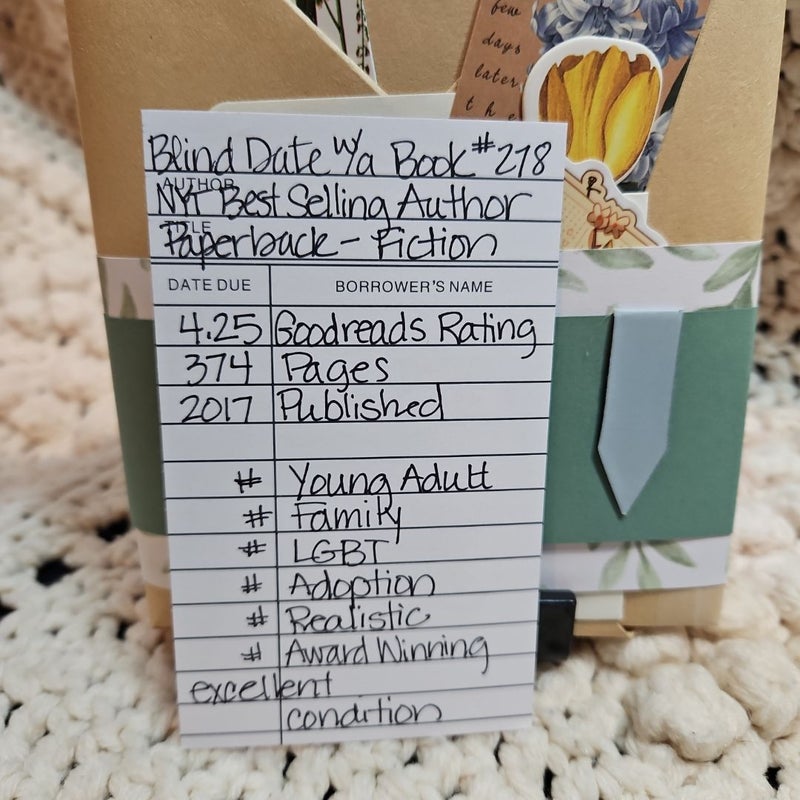 few
days
later
the
R
Blind Date w/a Book #278
AUTHOR
NYT Best Selling Author
TITLE
Paperback - Fiction
DATE DUE BORROWER'S NAME
4.25 Goodreads Rating
374 Pages
2017 Published
# Young Adult
# Family
# LGBT
# Adoption
# Realistic
# Award Winning
excellent
condition